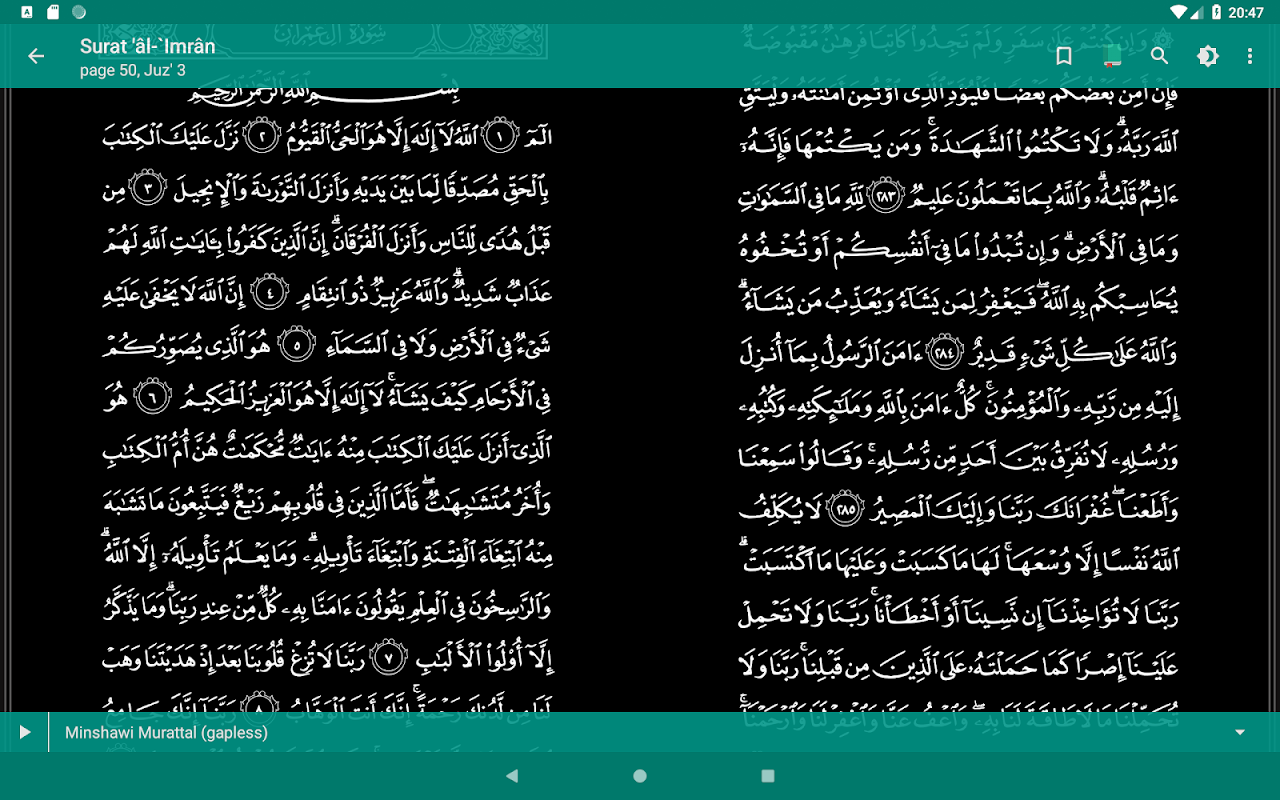 20:47
Surat 'âl-`Imrân
page 50, Juz' 3
سُورَةُ آلِ عِمْرَانَ
۞ وَإِن كُنتُمْ عَلَىٰ سَفَرٍ وَلَمْ تَجِدُوا۟ كَاتِبًا فَرِهَٰنٌ مَّقْبُوضَةٌ ۖ
فَإِنْ أَمِنَ بَعْضُكُم بَعْضًا فَلْيُؤَدِّ ٱلَّذِى ٱؤْتُمِنَ أَمَٰنَتَهُۥ وَلْيَتَّقِ
ٱللَّهَ رَبَّهُۥ ۗ وَلَا تَكْتُمُوا۟ ٱلشَّهَٰدَةَ ۚ وَمَن يَكْتُمْهَا فَإِنَّهُۥٓ
ءَاثِمٌ قَلْبُهُۥ ۗ وَٱللَّهُ بِمَا تَعْمَلُونَ عَلِيمٌ ٢٨٣ لِّلَّهِ مَا فِى ٱلسَّمَٰوَٰتِ
وَمَا فِى ٱلْأَرْضِ ۗ وَإِن تُبْدُوا۟ مَا فِىٓ أَنفُسِكُمْ أَوْ تُخْفُوهُ
يُحَاسِبْكُم بِهِ ٱللَّهُ ۖ فَيَغْفِرُ لِمَن يَشَآءُ وَيُعَذِّبُ مَن يَشَآءُ ۗ
وَٱللَّهُ عَلَىٰ كُلِّ شَىْءٍ قَدِيرٌ ٢٨٤ ءَامَنَ ٱلرَّسُولُ بِمَآ أُنزِلَ
إِلَيْهِ مِن رَّبِّهِۦ وَٱلْمُؤْمِنُونَ ۚ كُلٌّ ءَامَنَ بِٱللَّهِ وَمَلَٰٓئِكَتِهِۦ وَكُتُبِهِۦ
وَرُسُلِهِۦ لَا نُفَرِّقُ بَيْنَ أَحَدٍ مِّن رُّسُلِهِۦ ۚ وَقَالُوا۟ سَمِعْنَا
وَأَطَعْنَا ۖ غُفْرَانَكَ رَبَّنَا وَإِلَيْكَ ٱلْمَصِيرُ ٢٨٥ لَا يُكَلِّفُ
ٱللَّهُ نَفْسًا إِلَّا وُسْعَهَا ۚ لَهَا مَا كَسَبَتْ وَعَلَيْهَا مَا ٱكْتَسَبَتْ ۗ
رَبَّنَا لَا تُؤَاخِذْنَآ إِن نَّسِينَآ أَوْ أَخْطَأْنَا ۚ رَبَّنَا وَلَا تَحْمِلْ
عَلَيْنَآ إِصْرًا كَمَا حَمَلْتَهُۥ عَلَى ٱلَّذِينَ مِن قَبْلِنَا ۚ رَبَّنَا وَلَا
تُحَمِّلْنَا مَا لَا طَاقَةَ لَنَا بِهِۦ ۖ وَٱعْفُ عَنَّا وَٱغْفِرْ لَنَا وَٱرْحَمْنَآ ۚ
بِسْمِ ٱللَّهِ ٱلرَّحْمَٰنِ ٱلرَّحِيمِ
الٓمٓ ١ ٱللَّهُ لَآ إِلَٰهَ إِلَّا هُوَ ٱلْحَىُّ ٱلْقَيُّومُ ٢ نَزَّلَ عَلَيْكَ ٱلْكِتَٰبَ
بِٱلْحَقِّ مُصَدِّقًا لِّمَا بَيْنَ يَدَيْهِ وَأَنزَلَ ٱلتَّوْرَىٰةَ وَٱلْإِنجِيلَ ٣ مِن
قَبْلُ هُدًى لِّلنَّاسِ وَأَنزَلَ ٱلْفُرْقَانَ ۗ إِنَّ ٱلَّذِينَ كَفَرُوا۟ بِـَٔايَٰتِ ٱللَّهِ لَهُمْ
عَذَابٌ شَدِيدٌ ۗ وَٱللَّهُ عَزِيزٌ ذُو ٱنتِقَامٍ ٤ إِنَّ ٱللَّهَ لَا يَخْفَىٰ عَلَيْهِ
شَىْءٌ فِى ٱلْأَرْضِ وَلَا فِى ٱلسَّمَآءِ ٥ هُوَ ٱلَّذِى يُصَوِّرُكُمْ
فِى ٱلْأَرْحَامِ كَيْفَ يَشَآءُ ۚ لَآ إِلَٰهَ إِلَّا هُوَ ٱلْعَزِيزُ ٱلْحَكِيمُ ٦ هُوَ
ٱلَّذِىٓ أَنزَلَ عَلَيْكَ ٱلْكِتَٰبَ مِنْهُ ءَايَٰتٌ مُّحْكَمَٰتٌ هُنَّ أُمُّ ٱلْكِتَٰبِ
وَأُخَرُ مُتَشَٰبِهَٰتٌ ۖ فَأَمَّا ٱلَّذِينَ فِى قُلُوبِهِمْ زَيْغٌ فَيَتَّبِعُونَ مَا تَشَٰبَهَ
مِنْهُ ٱبْتِغَآءَ ٱلْفِتْنَةِ وَٱبْتِغَآءَ تَأْوِيلِهِۦ ۗ وَمَا يَعْلَمُ تَأْوِيلَهُۥٓ إِلَّا ٱللَّهُ ۗ
وَٱلرَّٰسِخُونَ فِى ٱلْعِلْمِ يَقُولُونَ ءَامَنَّا بِهِۦ كُلٌّ مِّنْ عِندِ رَبِّنَا ۗ وَمَا يَذَّكَّرُ
إِلَّآ أُو۟لُوا۟ ٱلْأَلْبَٰبِ ٧ رَبَّنَا لَا تُزِغْ قُلُوبَنَا بَعْدَ إِذْ هَدَيْتَنَا وَهَبْ
لَنَا مِن لَّدُنكَ رَحْمَةً ۚ إِنَّكَ أَنتَ ٱلْوَهَّابُ ٨ رَبَّنَآ إِنَّكَ جَامِعُ
Minshawi Murattal (gapless)